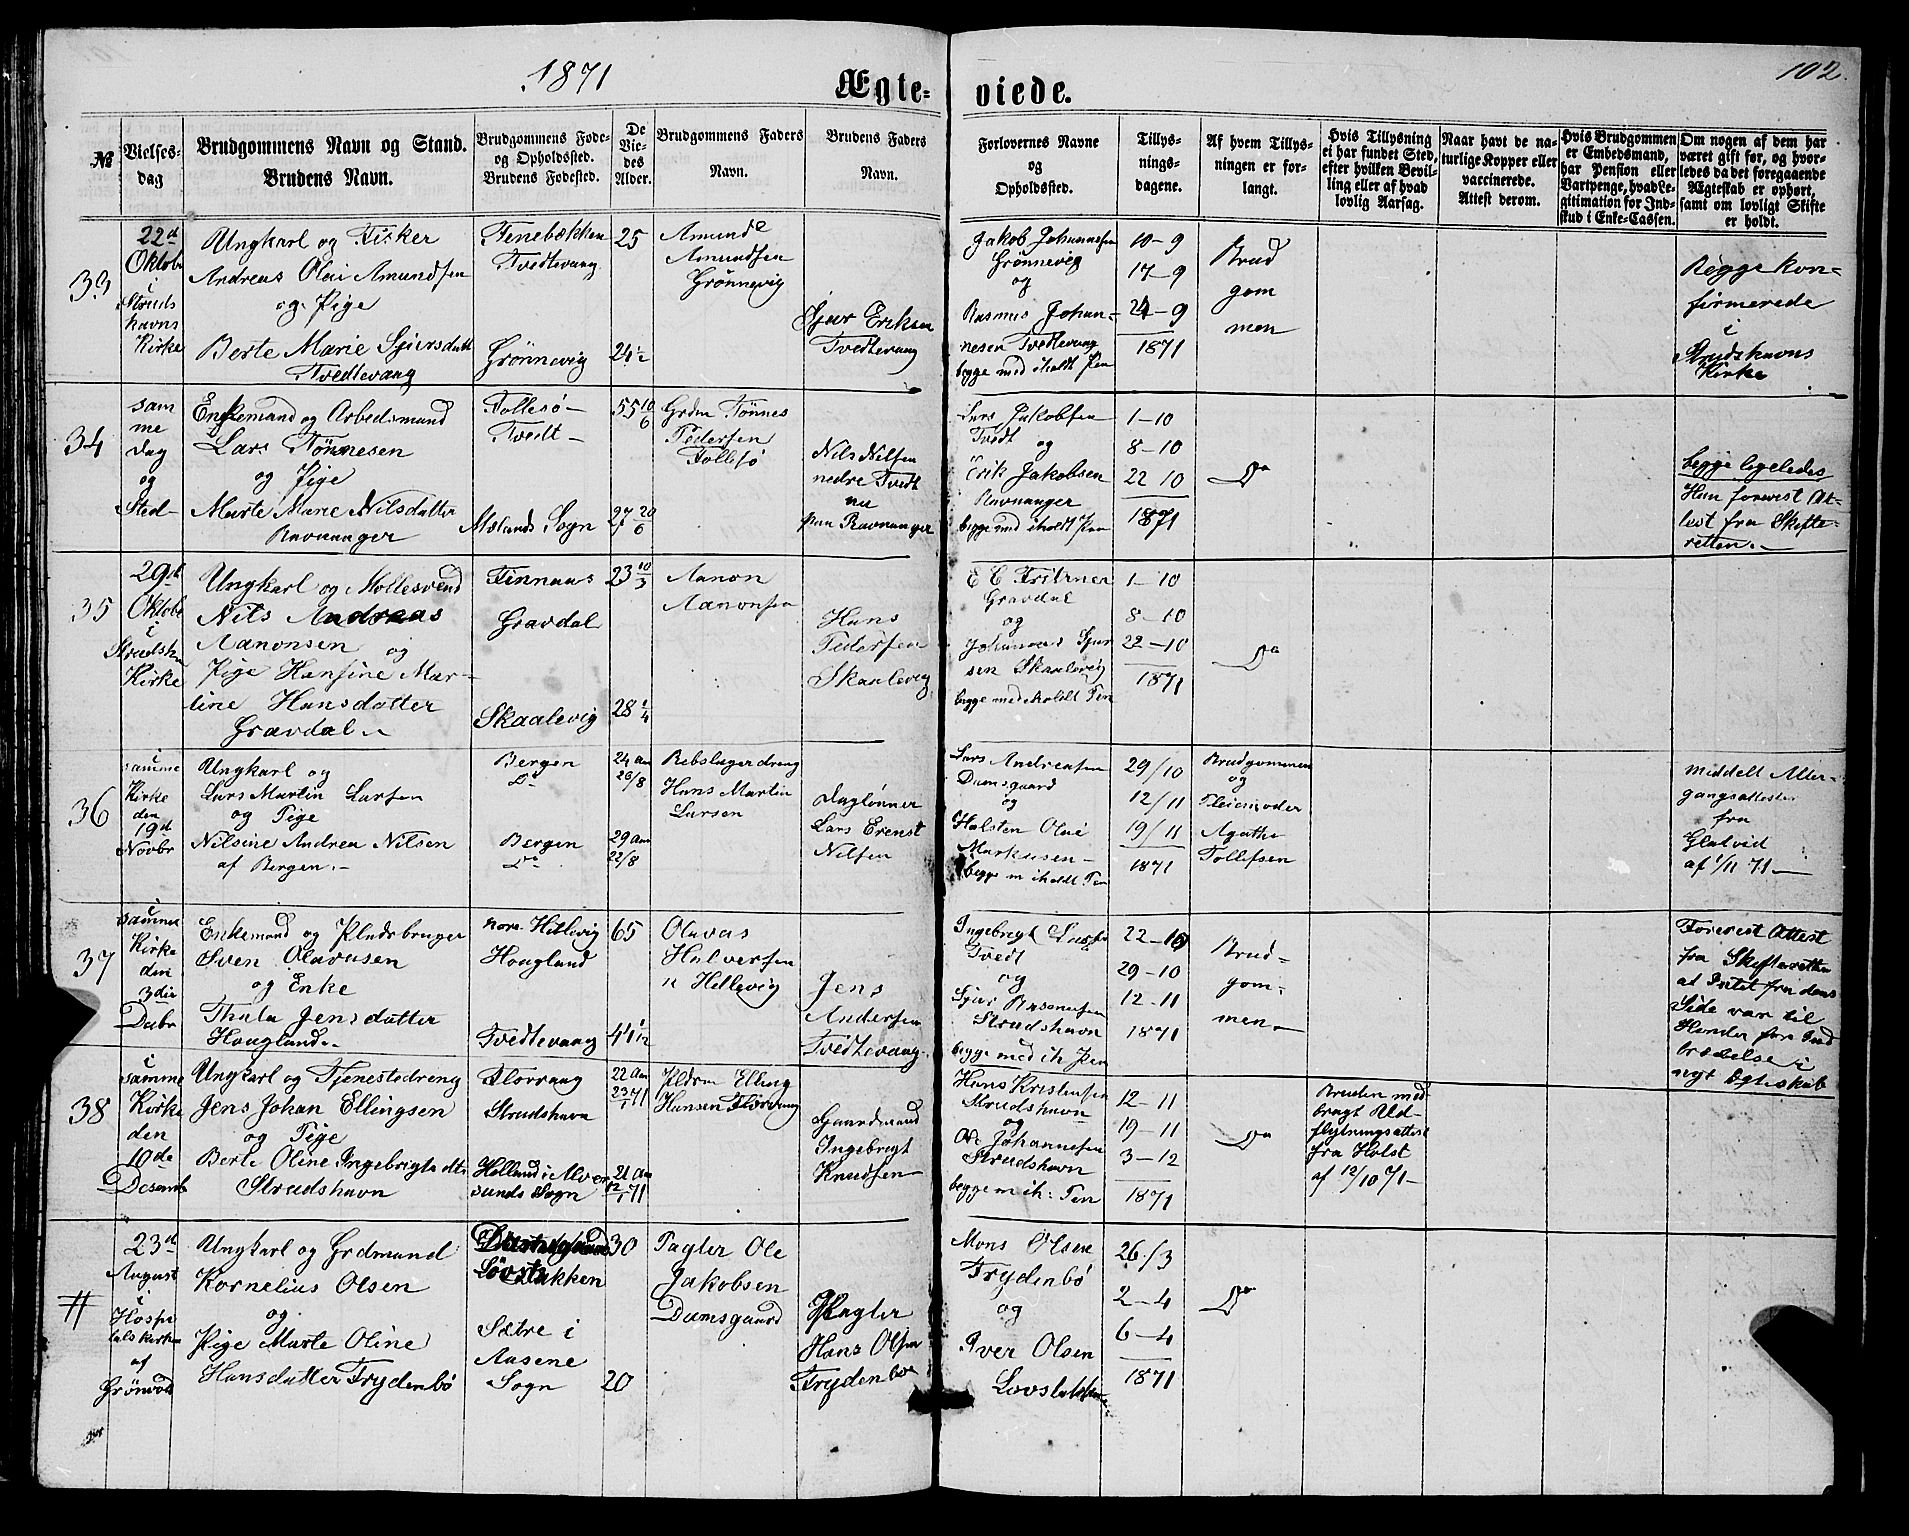 1871
Ægte-
viede.
102.
№
Vielses-
dag
Brudgommens Navn og Stand.
Brudens Navn.
Brudgommens Føde-
og Opholdssted.
Brudens Fødested.
De
Vie-
des
Alder.
Brudgommens Faders
Navn.
Brudens Faders
Navn.
Forlovernes Navne
og
Opholdssted.
Tillys-
nings-
dagene.
Af hvem Tillys-
ningen er for-
langt.
Hvis Tillysning
ei har fundet Sted,
efter hvilken Bevil-
ling eller af hvad
lovlig Aarsag.
Naar havt de na-
turlige Kopper eller
vaccinerede.
Attest derom.
Hvis Brudgommen
er Embedsmand,
har Pension eller
Vartpenge, hvad Le-
gitimation for Ind-
skud i Enke-Cassen.
Om nogen af dem har
været gift før, og hvor-
ledes da det foregaaende
Ægteskab er ophørt,
samt om lovligt Skifte
er holdt.
33
22d
Oktobr
i
Struds
havns
Kirke
Ungkarl og Fisker
Andreas Olai Amundsen
og Pige
Berte Marie Sjursdatt
Tvedtevang
Tenebækken
Tvedtevang
Grønnevig
25
24½
Amund
Amundsen
Grønnevig
Sjur Eriksen
Tvedtevang
Jakob Johannesen
Grønnevig
og
Rasmus Johan-
nesen Tvedtevang
begge med iholdt Pen
10-9
17-9
24-9
1871
Brud
gom
men
Begge kon-
firmerede
i
Strudshavns
Kirke
34
sam
me
Dag
og
Sted-
Enkemand og Arbedsmand
Lars Tønnesen
og Pige
Marte Marie Nilsdatter
Ravnanger
Follesø-
Tvedt-
Mælands Sogn
55 10/6
27 20/6
Grdm Tønnes
Pedersen
Follesø
Nils Nilsen
nedre Tvedt
nu
paa Ravnanger
Lars Jakobsen
Tvedt
og
Erik Jakobsen
Ravnanger
begge med iholdt Pen
1-10
8-10
22 10
1871
Do
begge ligeledes
Han forevist At-
test fra Skifte-
retten.-
35
29d
Oktobr
i
Strudsh
Kirke
Ungkarl og Møllesvend
Nils Andreas
Aanonsen og
Pige Hansine Mar-
tine Hansdatter
Gravdal
Finnaas
Gravdal
Skaalevig
23 10/3
28 1/4
Aanon
Aanonsen
Hans
Pedersen
Skaalevig
E C Fritzner
Gravdal
og
Johannes Sjur
sen Skaalevig
begge med iholdt Pen
1-10
8-10
22-10
1871
Do
36
i
samme
Kirke
den
19d
Novbr
Ungkarl og
Lars Martin Larsen
og Pige
Nilsine Andrea Nilsen
af Bergen.-
Bergen
Do
Bergen
Do
24 Aar
26/8
29 Aar
22/8
Rebslagerdreng
Hans Martin
Larsen
Daglønner
Lars Erenst
Nilsen
Lars Andreasen
Damsgaard
og
Halsten Olai
Markusen-
begge m iholdt Pen
29/10
12/11
19/11
1871
Brudgommen
og
Pleiemoder
Agathe
Tollefsen
middelt Alter-
gangsattester
fra
af 1/11 71-
37
i
samme
Kirke
den
3die
Decbr
Enkemand og Pladsbruger
Sven Olavusen
og Enke
Thala Jensdatter
Hougland.-
Hougland
Tvedtevang
65
44½
Olavas
Halversen
n Hellevig
Jens
Andersen
Tvedtevang
Ingebregt
Tvedt
og
Sjur Rasmusen
Strudshavn
begge med ih Pen
22-10
29-10
12-11
1871
Brud-
gom-
men-
Forevist Attest
fra Skifteretten
at Intet fra dens
Side var til
Hinder for Ind
trædelse i
nyt Ægteskab
38
i
samme
Kirke
den
10de
Desemb
Ungkarl og Tjenestedreng
Jens Johan Ellingsen
og Pige
Berte Oline Ingebrigtsdtr
Strudshavn
Florvaag
Strudshavn
Helland i Alver
sunds Sogn
22 Aar
23/1 71
21 Aar
12/1 71
Pldsm Elling
Hansen Florvaag
Gaardmand
Ingebregt
Knudsen-
Hans Kristensen
Strudshavn
og
Ole Johannesen
Strudshavn
begge m ih: Pen
12-11
19-11
3-12
1871
Do
Bruden med
bragt Ud-
flytningsattest
fra Holst
af 12/10 71-
#
23d
August
i
Hospi
talskirken
af
Grønvold
Ungkarl og Grdmand
Kornelius Olsen
og
Pige Marte Oline
Hansdatter Frydenbø
Løvstakken
Sætre i
Aasene
Sogn
30
20
Pagter Ole
Jakobsen
Damsgaard
Pagter
Hans Olsen
Frydenbø
Mons Olsen
Frydenbø
og
Iver Olsen
Lovstakken
26/3
2-4
6-4
1871
Do